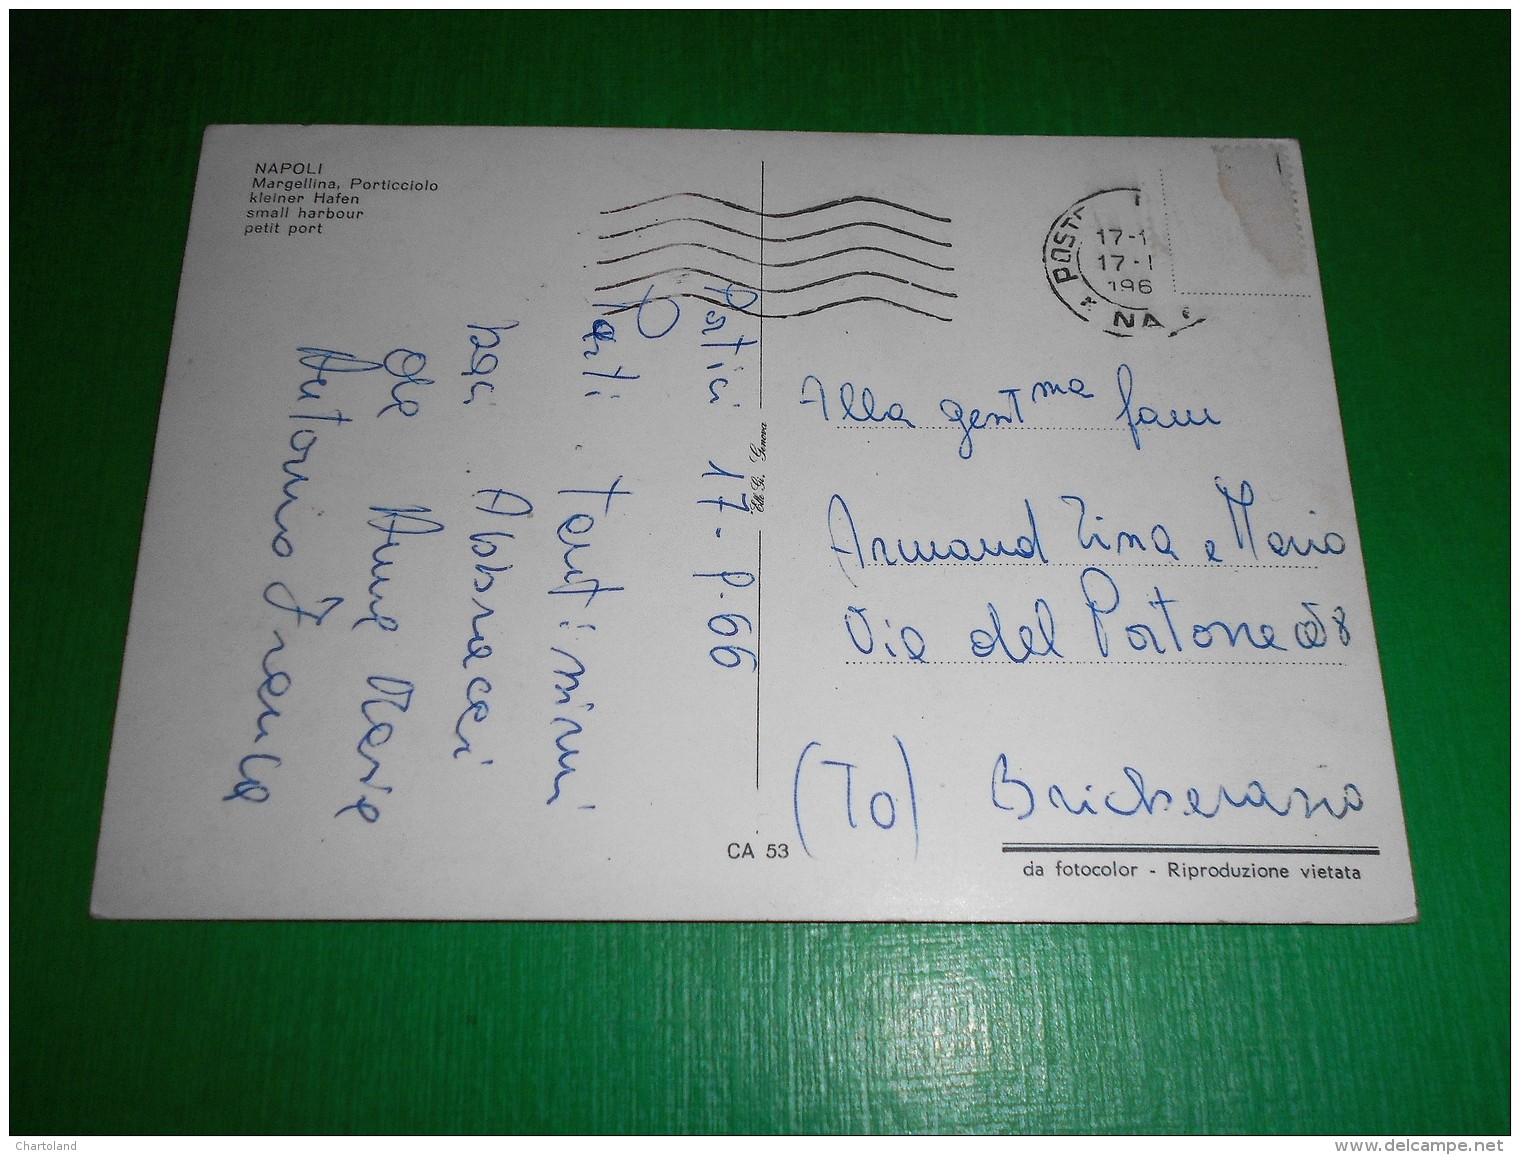 NAPOLI
Margellina, Porticciolo
kleiner Hafen
small harbour
petit port
POSTE
17-1
17-1
196
* NA
Portici 17-9-66
Tanti Tantissimi
baci Abbracci
da Anna Maria
Antonio Franca
Ediz. G. Genova
Alla gent.ma fam
Armand Tina e Maria
Via del Portone 68
(To) Bricherasio
CA 53
da fotocolor - Riproduzione vietata
Chartoland
www.delcampe.net